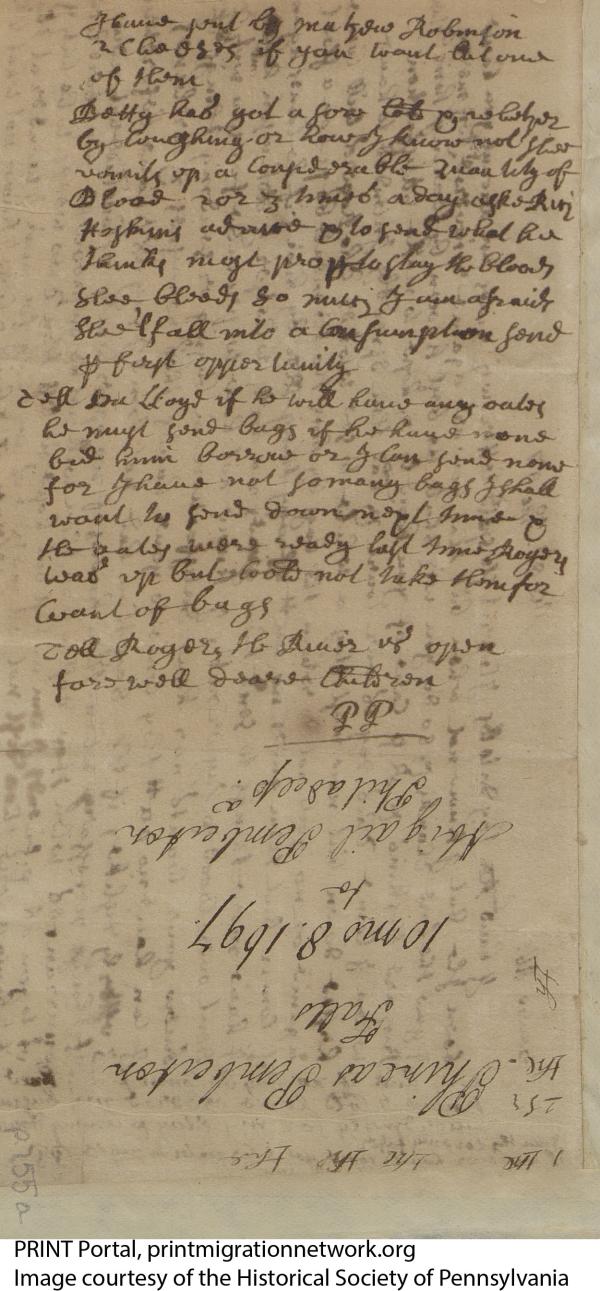 I have sent by mathew Robinson
2 Cheeses if you want but one
of them
Betty has got a sore & whether
by Coughing or how I know not shee
vomits up a Considerable Quantity of
Blood 2 or 3 times a day aske
Hoskins advice & to send what he
thinks most pro to stay the blood
Shee bleeds so much I am afraid
Shee'l fall into a Consumption send
p first oppertunity
Tell Lloyd if he will have any oates
he must send bags if he have none
bid him borrow or I Can send none
for I have not somany bags I shall
want to send down next time &
the oates were ready last time Roger
was up but not take them for
want of bags
Tell Roger the River is open
farewell deare Children
PP
Phineas Pemberton
Falls
10 mo 8. 1697.
to
Abigail Pemberton
a
Philadelp.
the the the the
p255a
PRINT Portal, printmigrationnetwork.org
Image courtesy of the Historical Society of Pennsylvania